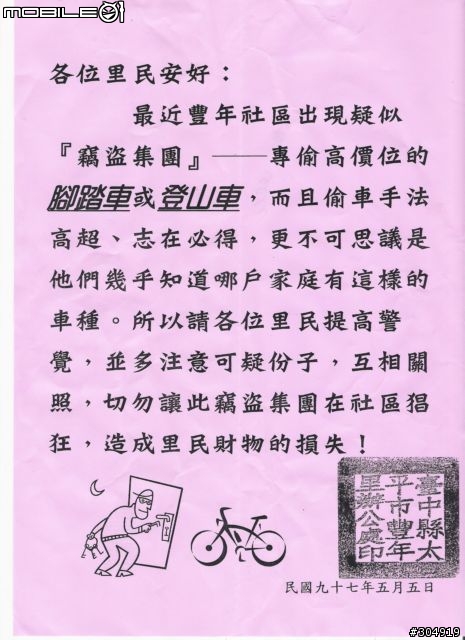 mobile01
各位里民安好：
最近豐年社區出現疑似
『竊盜集團』——專偷高價位的
腳踏車或登山車，而且偷車手法
高超、志在必得，更不可思議是
他們幾乎知道哪戶家庭有這樣的
車種。所以請各位里民提高警
覺，並多注意可疑份子，互相關
照，切勿讓此竊盜集團在社區猖
狂，造成里民財物的損失！
臺中縣太
平市豐年
里辦公處印
民國九十七年五月五日
#304919